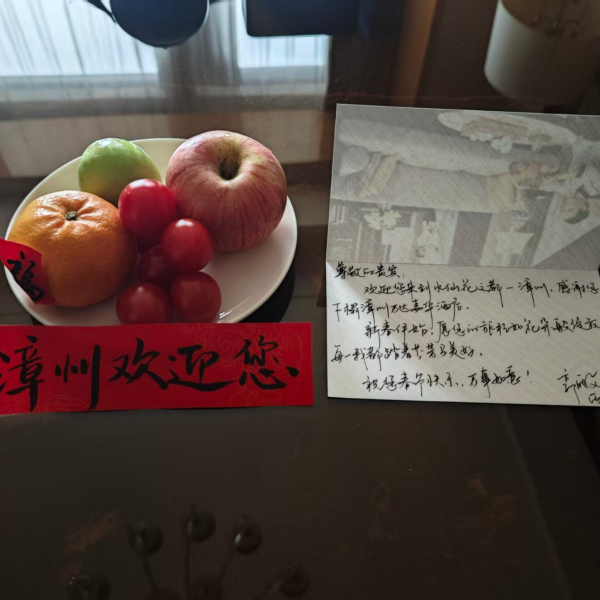 福
漳州欢迎您
尊敬的贵宾：
欢迎您来到水仙花之都－漳州，感谢您
下榻漳州万达嘉华酒店。
新春伊始，愿您的旅程如花朵般绽放
每一刻都踏着芬芳与美好。
祝您春节快乐，万事如意！